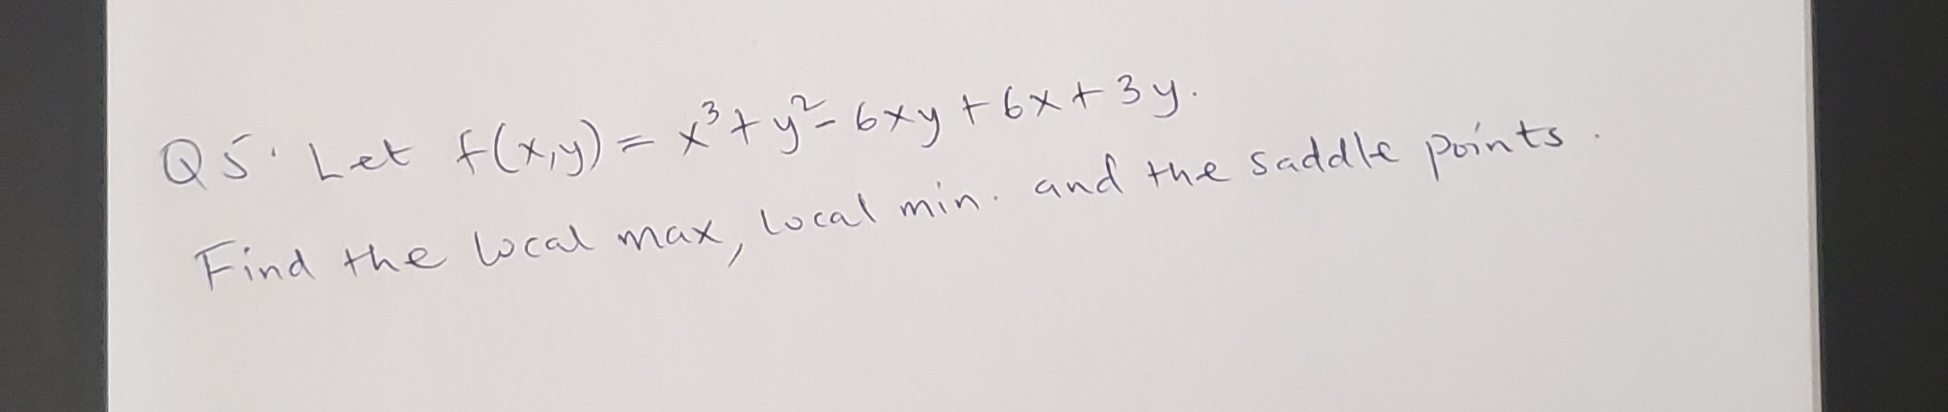 Q5. Let f(x,y) = x³ + y² - 6xy + 6x + 3y.
Find the local max, local min. and the saddle points.